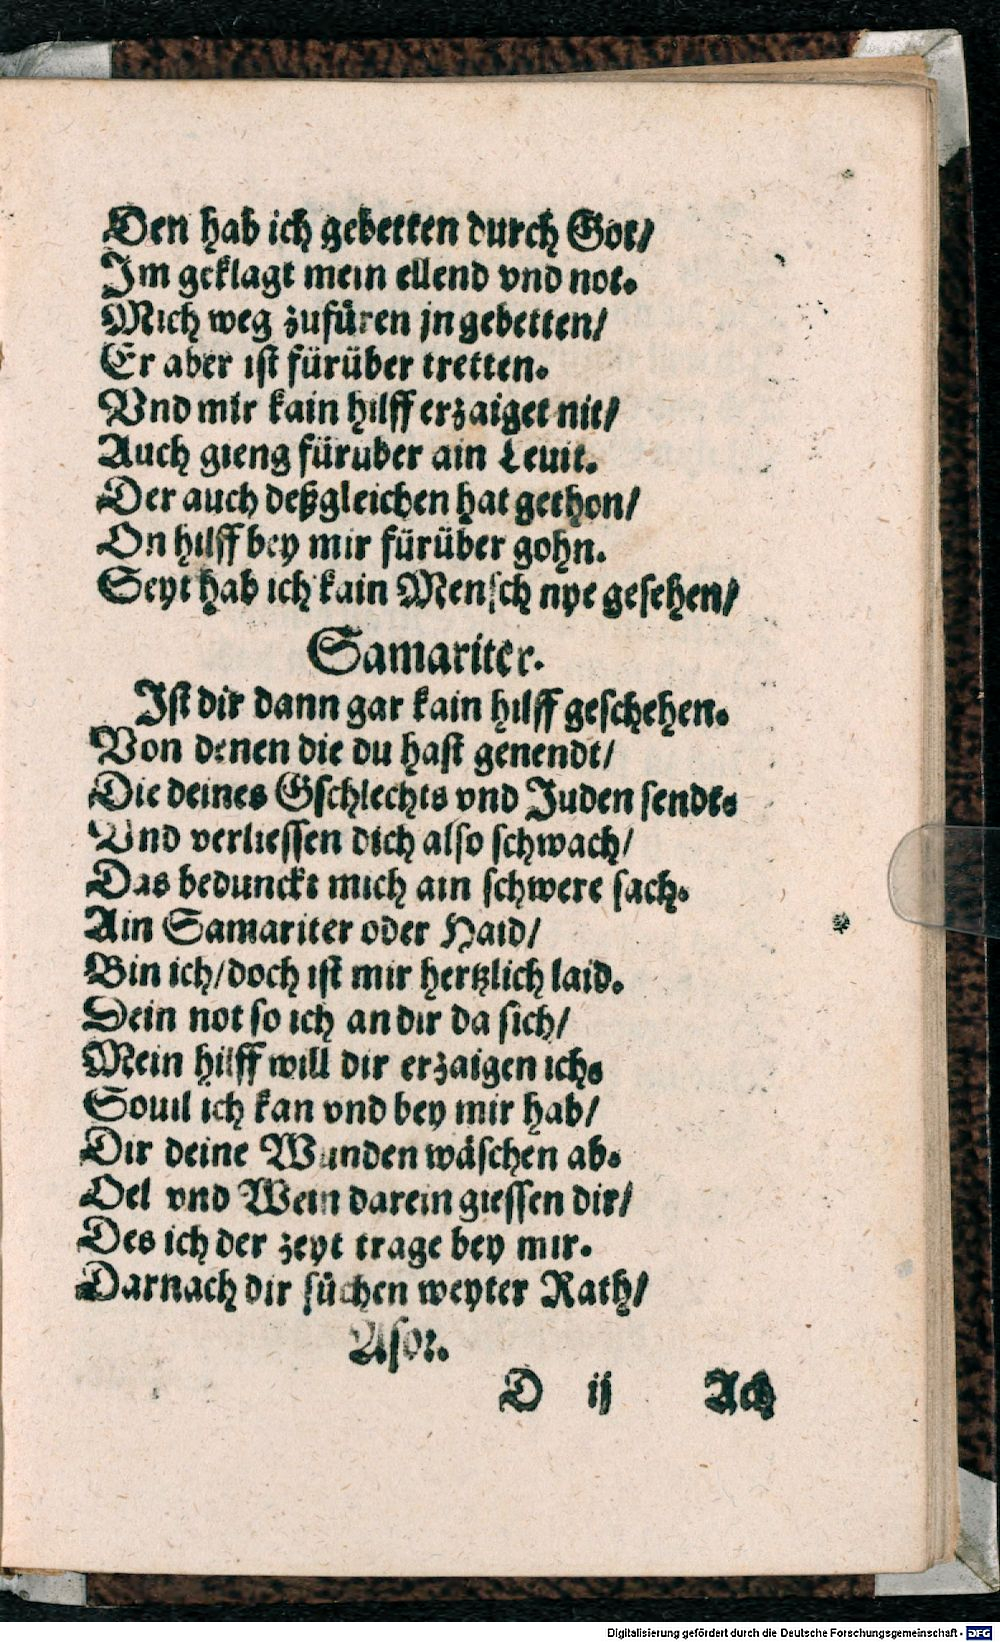 Den hab ich gebetten durch Got/
Im geklagt mein ellend vnd not.
Mich weg zufüren jn gebetten/
Er aber ist fürüber tretten.
Vnd mir kain hilff erzaiget nit/
Auch gieng fürüber ain Leuit.
Der auch deßgleichen hat gethon/
On hilff bey mir fürüber gohn.
Seyt hab ich kain Mensch nye gesehen/
Samariter.
Ist dir dann gar kain hilff geschehen.
Von denen die du hast genendt/
Die deines Gschlechts vnd Juden sendt.
Vnd verliessen dich also schwach/
Das bedunckt mich ain schwere sach.
Ain Samariter oder Haid/
Bin ich/doch ist mir hertzlich laid.
Dein not so ich an dir da sich/
Mein hilff will dir erzaigen ich.
Souil ich kan vnd bey mir hab/
Dir deine Wunden wäschen ab.
Oel vnd Wein darein giessen dir/
Des ich der zeyt trage bey mir.
Darnach dir süchen weyter Rath/
Asor.
D ij Ach
Digitalisierung gefördert durch die Deutsche Forschungsgemeinschaft - DFG